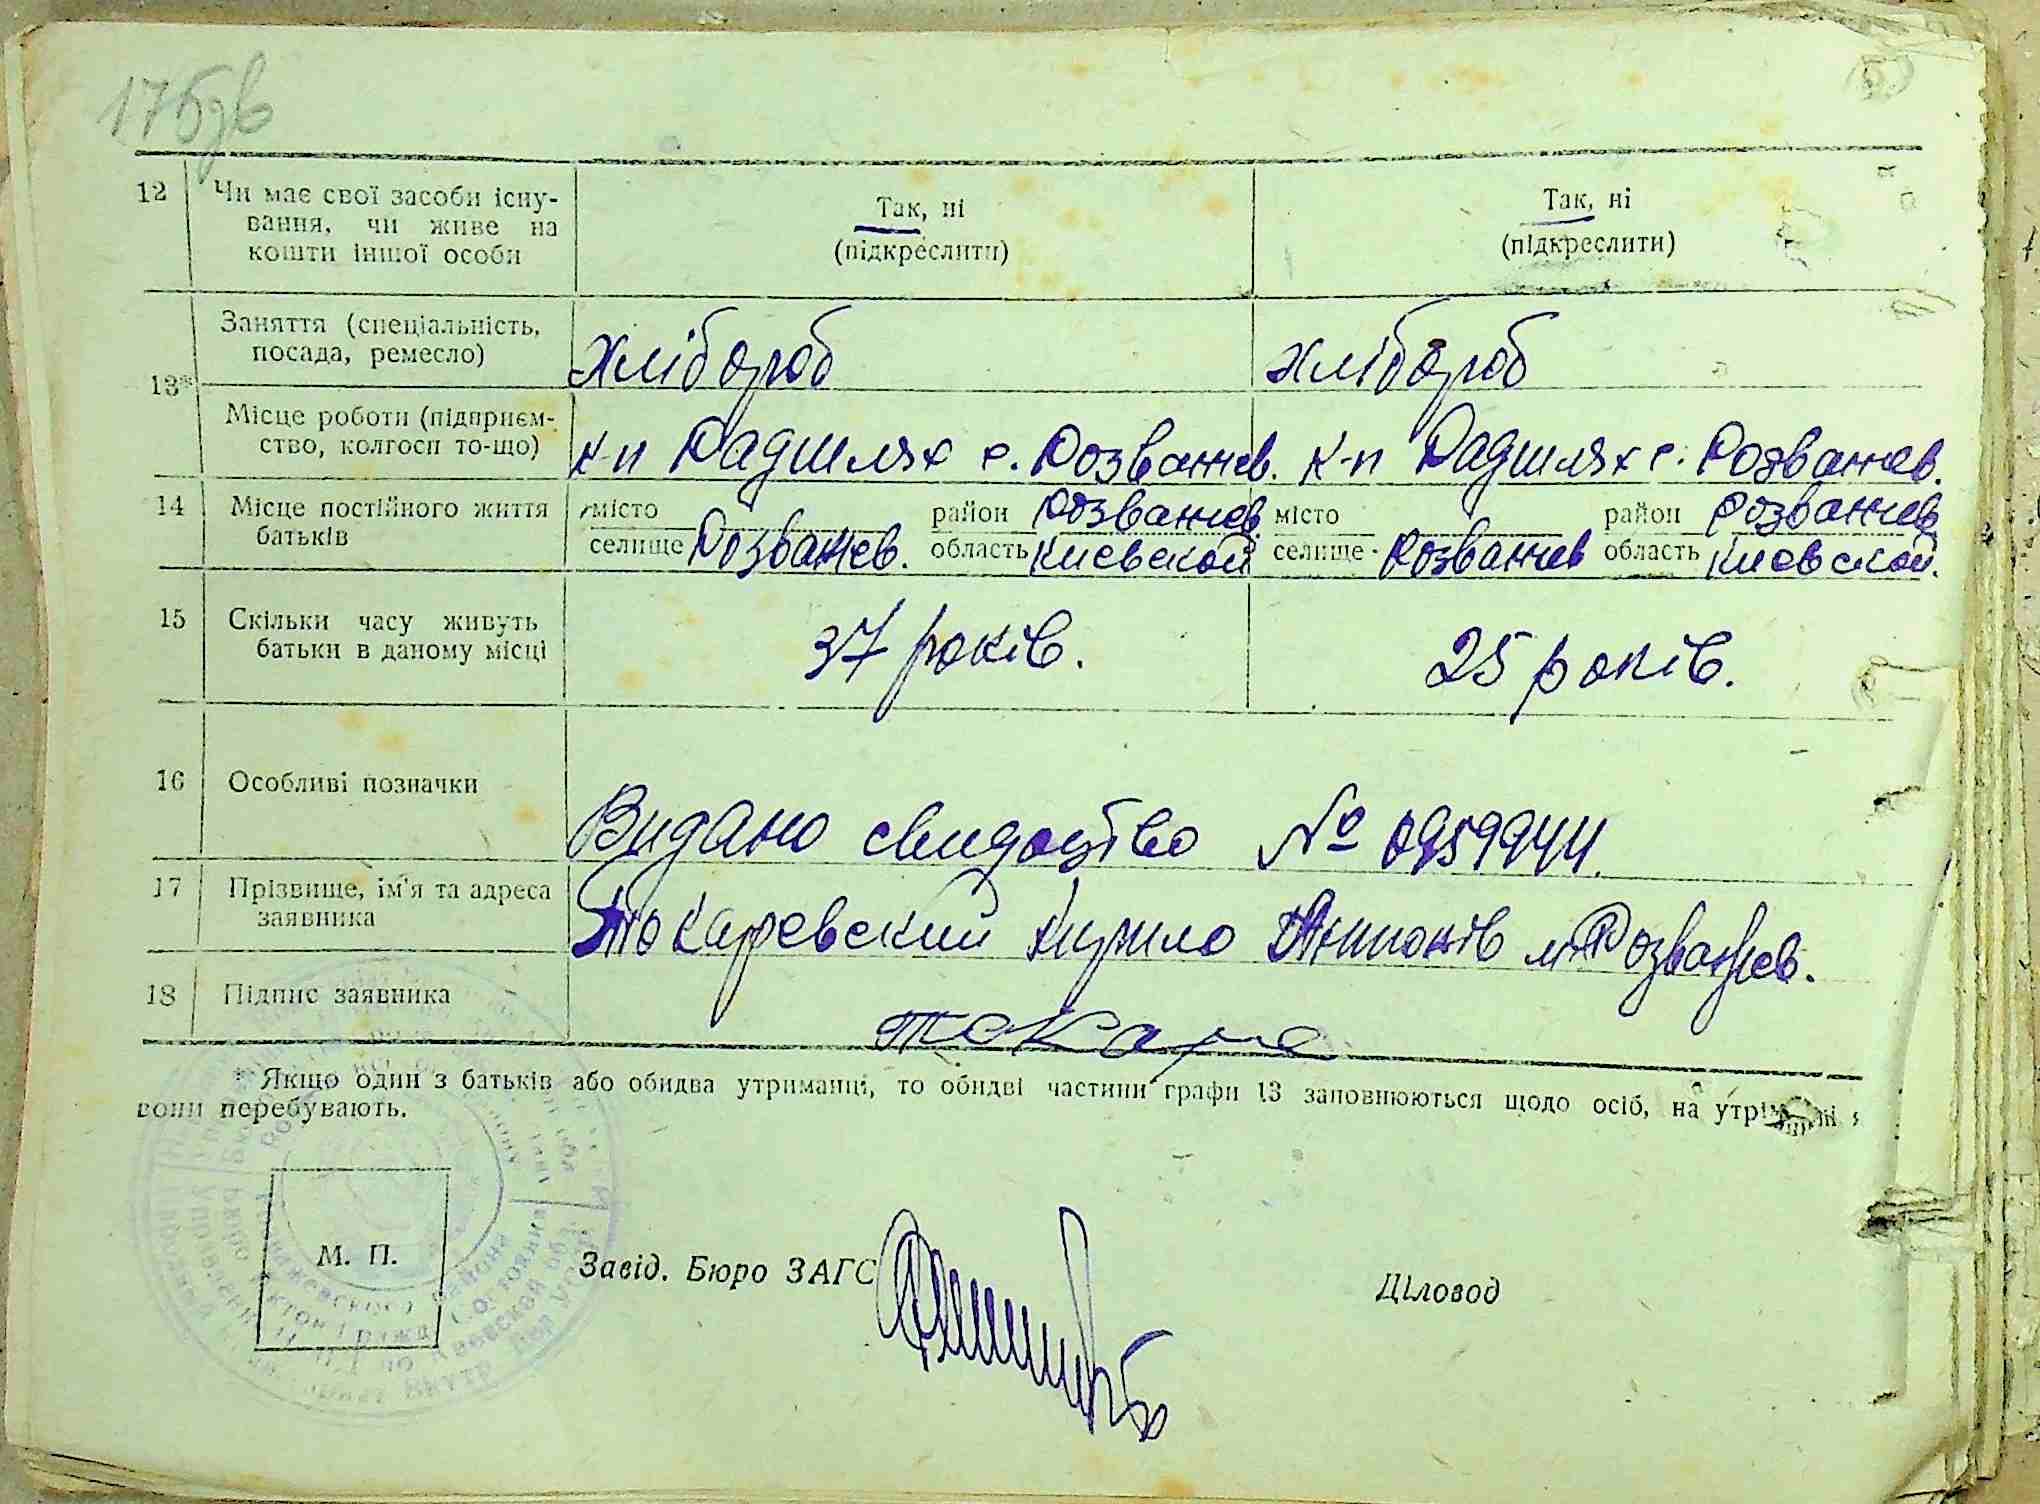 176зв
12 Чи має свої засоби існу-
вання, чи живе на
кошти іншої особи
Так, ні
(підкреслити)
Так, ні
(підкреслити)
13*
Заняття (спеціальність,
посада, ремесло)
хлібороб
хлібороб
Місце роботи (підприєм-
ство, колгосп то-що)
к-п Радшлях с. Розважев.
к-п Радшлях с. Розважев.
14 Місце постійного життя
батьків
місто район Розважев
селище Розважев. область Киевской
місто район Розважев
селище Розважев область Киевской.
15 Скільки часу живуть
батьки в даному місці
37 років.
25 років.
16 Особливі позначки
Видано свидоцтво № 0959944.
17 Прізвище, ім'я та адреса
заявника
Токаревский Кирило Антонів м. Розважев.
18 Підпис заявника
Токаре
* Якщо один з батьків або обидва утриманці, то обидві частини графи 13 заповнюються щодо осіб, на утрим
вони перебувають.
М. П.
Завід. Бюро ЗАГС
Діловод